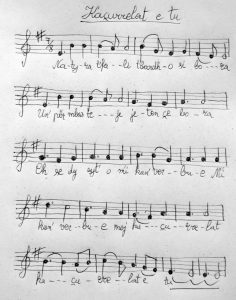 Kaçurrelat e tu
Na-ty-ra i fa--li bardh-o si bo--ra
Un' për mbas te--je je-ton çe bo-ra
Oh se dy syt o mi kan' ver-bu-e Mi
kan' ver-bu-e moj ka--çu--rrelat
ka----çu--rre-lat e tu